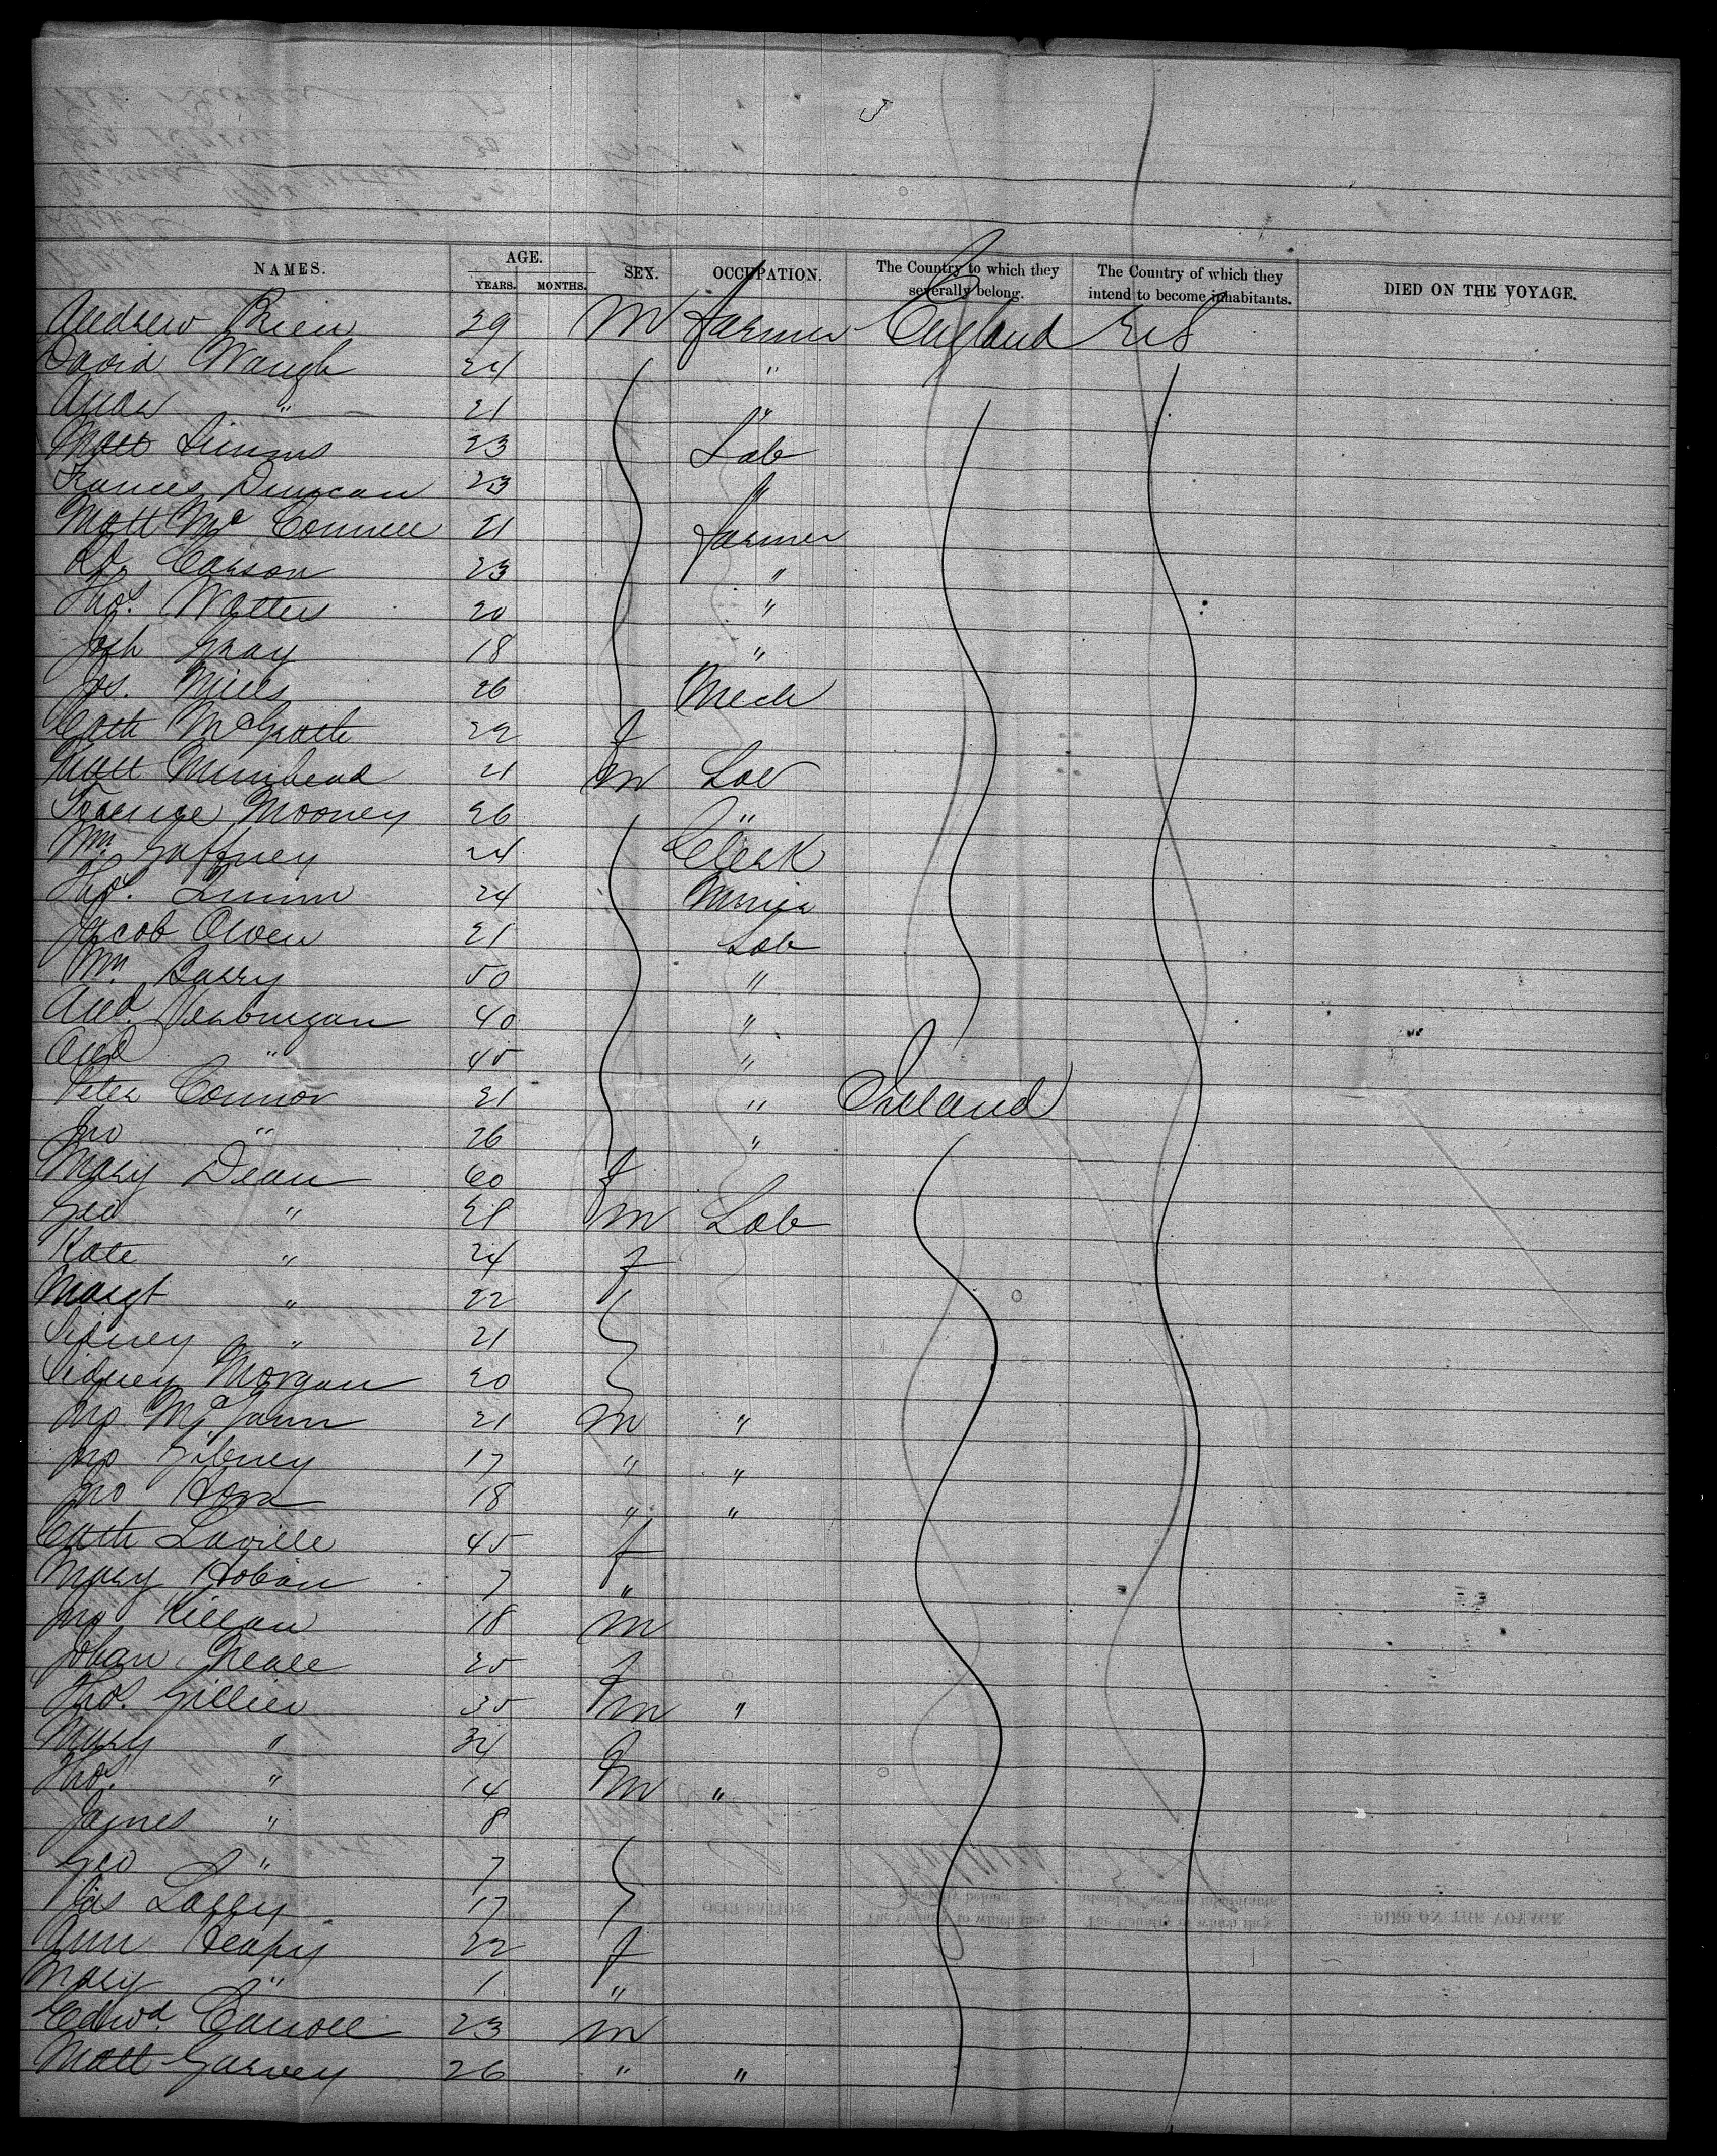 NAMES. AGE. SEX. OCCUPATION. The Country to which they severally belong. The Country of which they intend to become inhabitants. DIED ON THE VOYAGE.
YEARS. MONTHS.
Andrew Brien 29 M farmer England US
David Waugh 24 "
Andw " 21 "
Matt Simms 23 Lab
Frances Duncan 23 "
Matt McConnell 21 farmer
Carson 23 "
Thos. Watters 20 "
Josh Gray 18 "
Jos. Mills 26 Mech
Cath McGrath 22 f
Matt Muirhead 21 m Lab
Terence Mooney 26 "
Wm Gaffney 24 Clerk
Thos. Quinn 24 Miner
Jacob Owen 21 Lab
Wm Barry 50 "
And. 40 "
And " 45 "
Peter Connor 21 " Ireland
Jno " 26 "
Mary Dean 60 f
Geo " 28 m Lab
Kate " 24 f
Margt " 22
Sidney " 21
Sidney Morgan 20
Jno McGann 21 m "
Jno Gibney 17 " "
Jno 18 " "
Cath Laville 45 f
Mary Hoban 7 "
Jno Killan 18 m
Johan Neale 25 f
Thos. Gillien 35 m "
Mary " 34 f
Thos. " 14 m "
James " 8
Geo " 7
Jas Lally 17
Ann Heapy 22 f
Mary " 1 "
Edwd. Carroll 23 m
Matt Garvey 26 " "